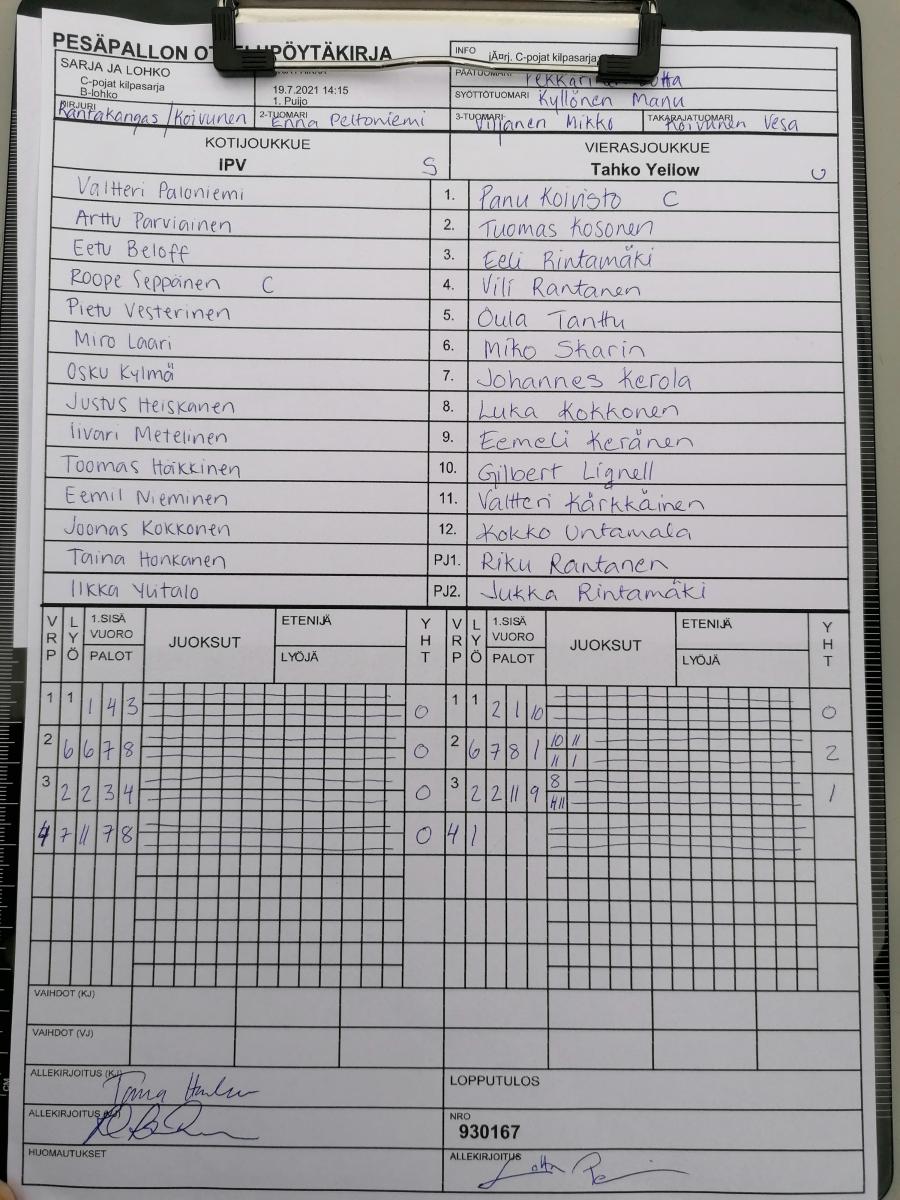 PESÄPALLON OTTELUPÖYTÄKIRJA
INFO jÄ¤rj. C-pojat kilpasarja
SARJA JA LOHKO
C-pojat kilpasarja
B-lohko
19.7.2021 14:15
1. Puijo
PÄÄTUOMARI
SYÖTTÖTUOMARI Kyllönen Manu
KIRJURI Rantakangas/Koivunen
2-TUOMARI Enna Peltoniemi
3-TUOMARI Viljanen Mikko
TAKARAJATUOMARI Koivunen Vesa
KOTIJOUKKUE VIERASJOUKKUE
IPV S Tahko Yellow U
Valtteri Paloniemi 1. Panu Koivisto C
Arttu Parviainen 2. Tuomas Kosonen
Eetu Beloff 3. Eeli Rintamäki
Roope Seppänen C 4. Vili Rantanen
Pietu Vesterinen 5. Oula Tanttu
Miro Laari 6. Miko Skarin
Osku Kylmä 7. Johannes Kerola
Justus Heiskanen 8. Luka Kokkonen
Iivari Metelinen 9. Eemeli Keränen
Toomas Häkkinen 10. Gilbert Lignell
Eemil Nieminen 11. Valtteri Kärkkäinen
Joonas Kokkonen 12. Kokko Untamala
Taina Honkanen PJ1. Riku Rantanen
Ilkka Ylitalo PJ2. Jukka Rintamäki
VRP LYÖ 1.SISÄ VUORO PALOT JUOKSUT ETENIJÄ LYÖJÄ YHT VRP LYÖ 1.SISÄ VUORO PALOT JUOKSUT ETENIJÄ LYÖJÄ YHT
1 1 1 4 3 0 1 1 2 1 10 0
2 6 6 7 8 0 2 6 7 8 1 10 11 2
11 1
3 2 2 3 4 0 3 2 2 11 9 8 1
4 11
4 7 11 7 8 0 4 1
VAIHDOT (KJ)
VAIHDOT (VJ)
ALLEKIRJOITUS (KJ)
LOPPUTULOS
ALLEKIRJOITUS (VJ)
NRO
930167
HUOMAUTUKSET
ALLEKIRJOITUS